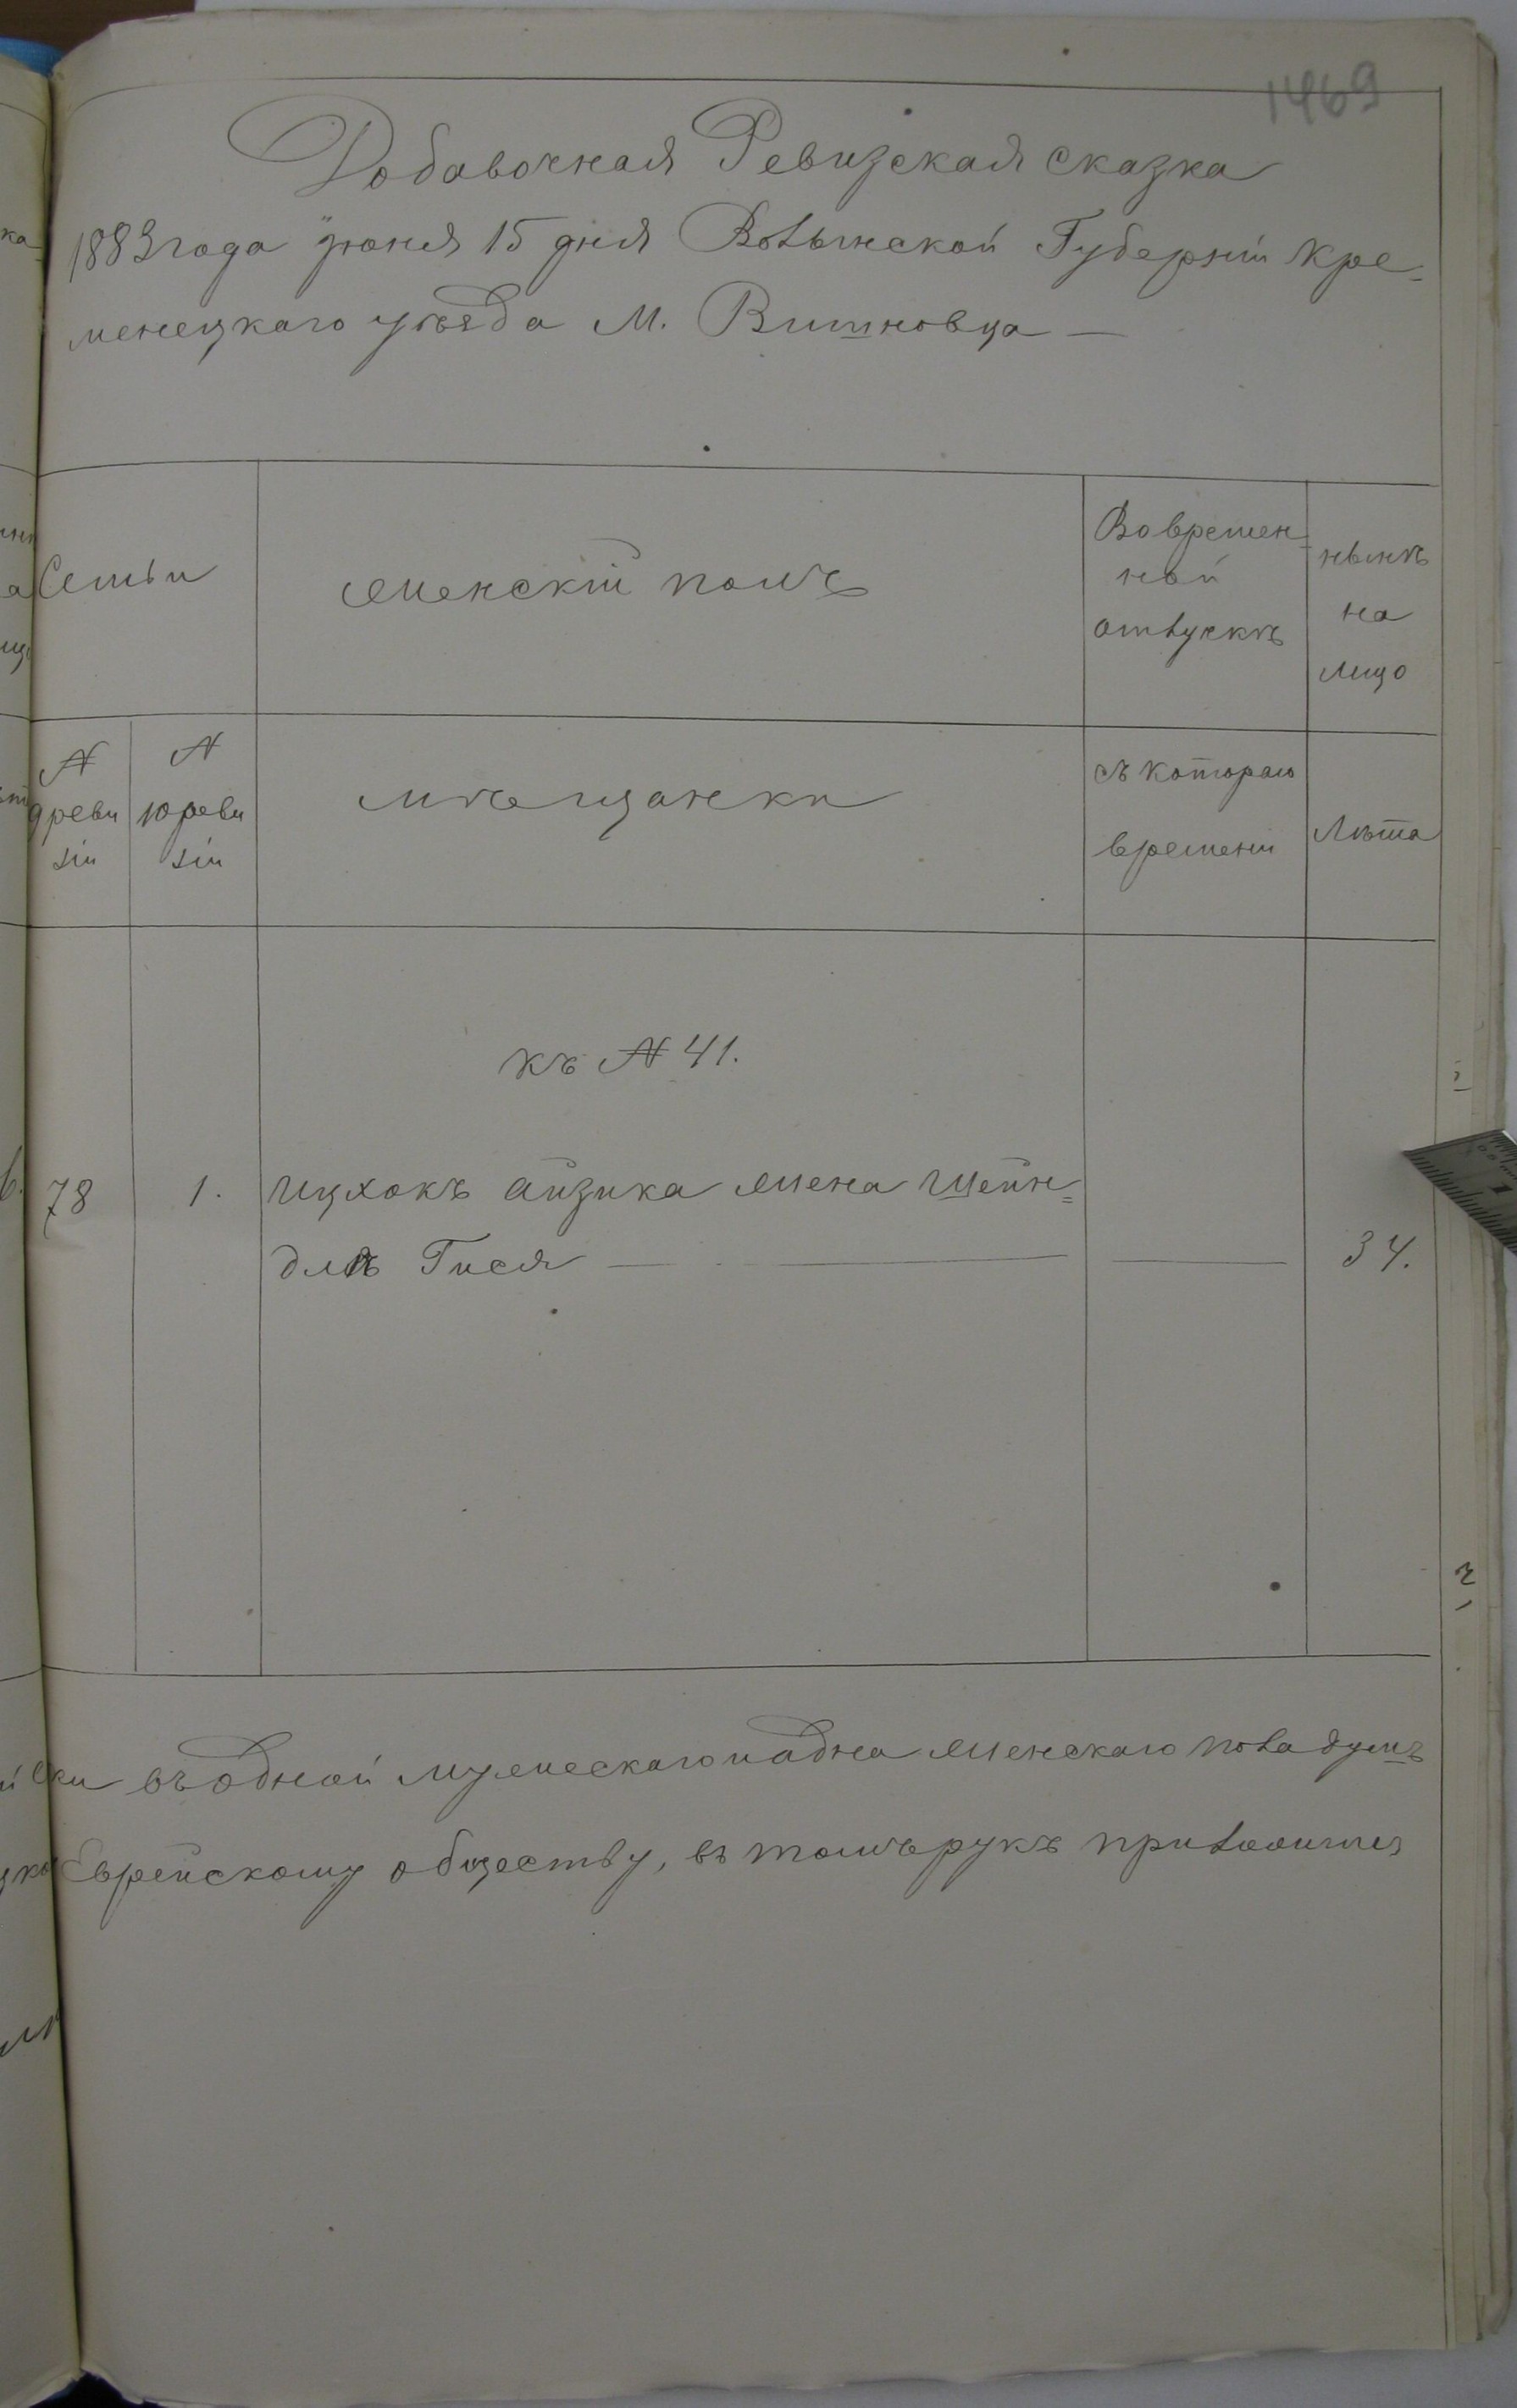 1469
Добавочная Ревизская сказка
1883 года июня 15 дня Волынской Губерніи Кре-
менецкаго уѣзда М. Вишновца —
Семьи
женскій полъ
Во времен-
ной
отлучкѣ
нынѣ
на
лицо
№
9 реви
зіи
№
10 реви
зіи
мѣщанки
съ котораго
времени
Лѣта
къ № 41.
78 1. Ицхокъ Айзика жена Шейн=
для Гися — — 34.
въ одной мужескаго и одна женскаго пола душъ
Еврейскому обществу, въ томъ рукъ приложили